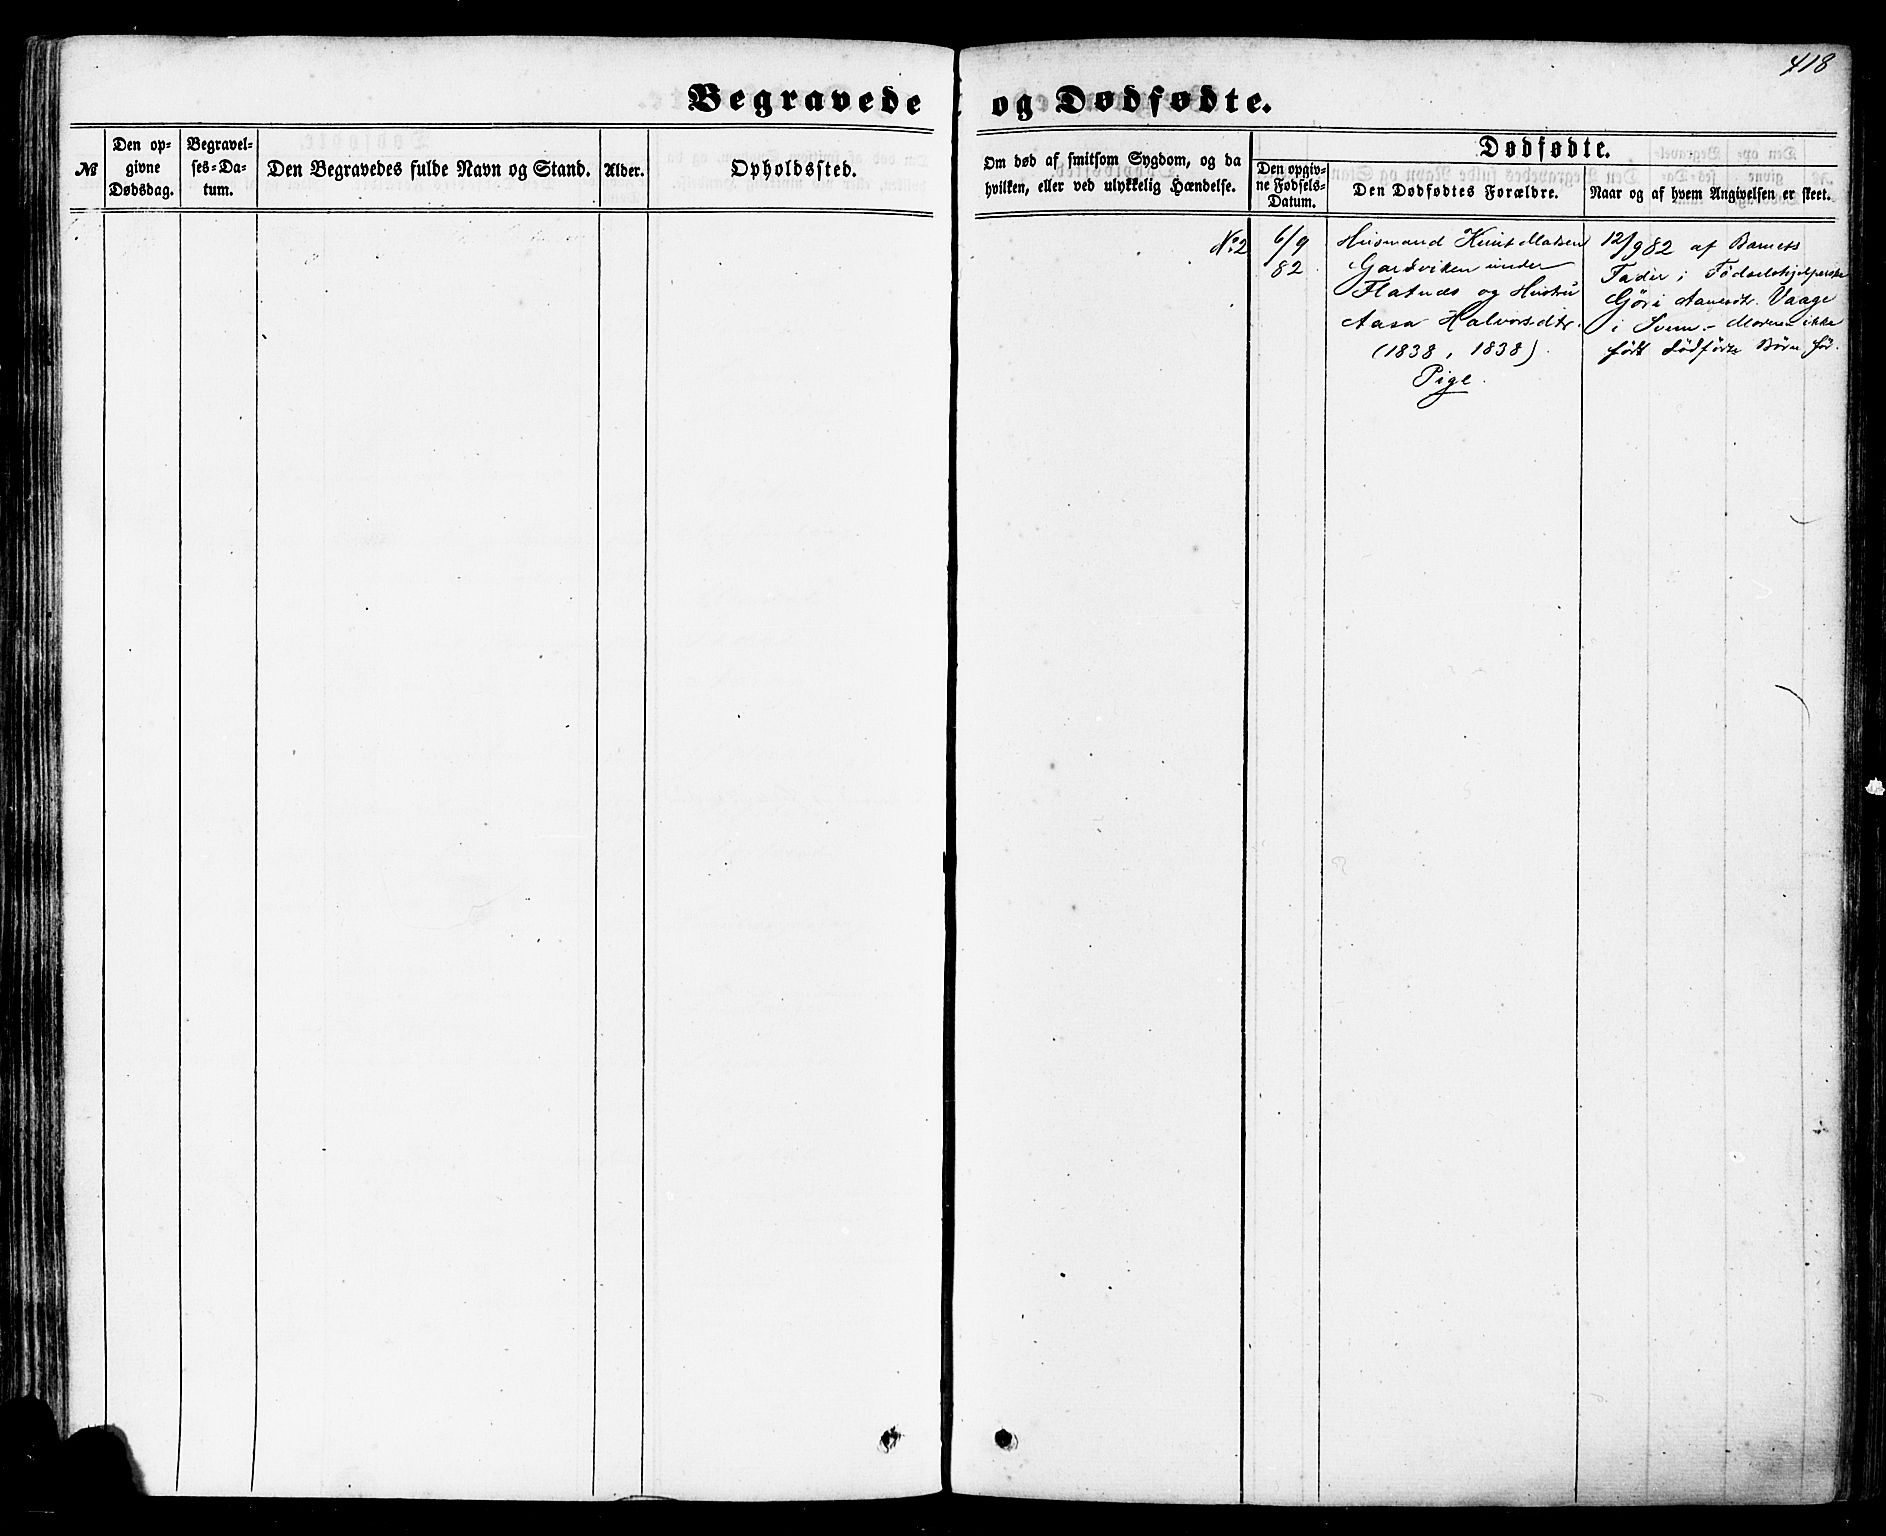 418
Begravede og Dødfødte.
№
Den op-
givne
Dødsdag.
Begravel-
ses-Da-
tum.
Den Begravedes fulde Navn og Stand.
Alder.
Opholdssted.
Om død af smitsom Sygdom, og da
hvilken, eller ved ulykkelig Hændelse.
Dødfødte.
Den opgiv-
ne Fødsels-
Datum.
Den Dødfødtes Forældre.
Naar og af hvem Angivelsen er skeet.
No 2
6/9
82.
Husmand Knut Madsen
Gardviken under
Flatnes og Hustru
Aasa Halvorsdtr.
(1838, 1838).
Pige.
12/9 82 af Barnets
Fader; Fødselshjelperske
Gøri Aanensdtr. Vaage
i Svenn.- Moderen ikke
født dødfødte Børn før.